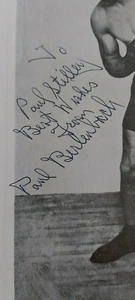 To
Paul Stilley
Best Wishes
From
Paul Berlenbach